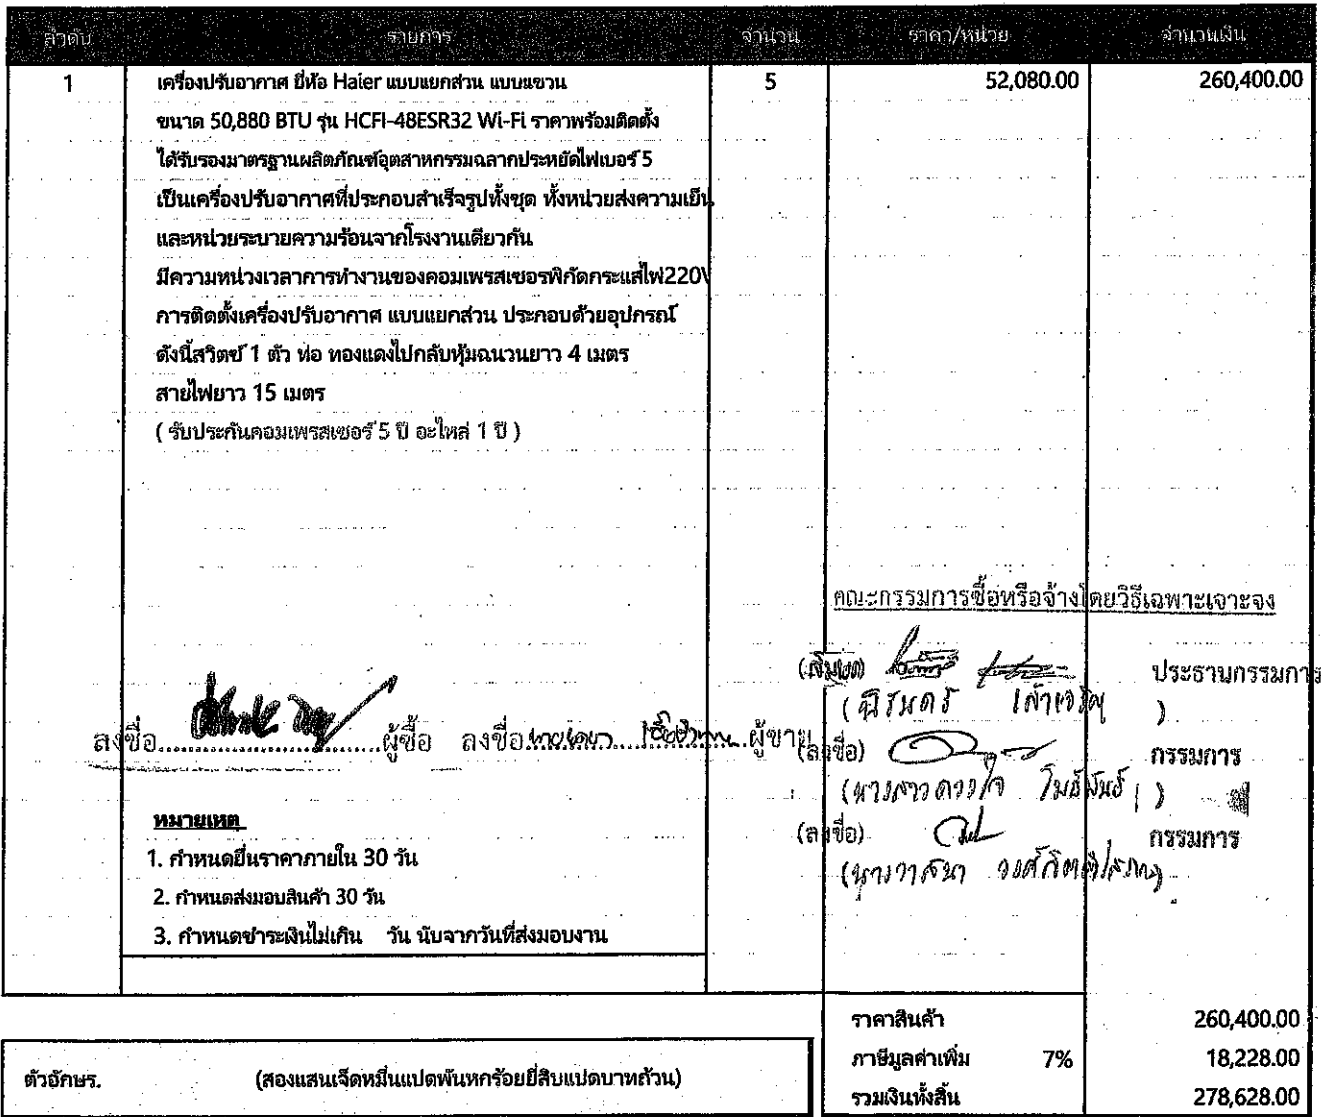 ลำดับ รายการ จำนวน ราคา/หน่วย จำนวนเงิน
1 เครื่องปรับอากาศ ยี่ห้อ Haier แบบแยกส่วน แบบแขวน 5 52,080.00 260,400.00
ขนาด 50,880 BTU รุ่น HCFI-48ESR32 Wi-Fi ราคาพร้อมติดตั้ง
ได้รับรองมาตรฐานผลิตภัณฑ์อุตสาหกรรมฉลากประหยัดไฟเบอร์ 5
เป็นเครื่องปรับอากาศที่ประกอบสำเร็จรูปทั้งชุด ทั้งหน่วยส่งความเย็น
และหน่วยระบายความร้อนจากโรงงานเดียวกัน
มีความหน่วงเวลาการทำงานของคอมเพรสเซอรพิกัดกระแสไฟ220V
การติดตั้งเครื่องปรับอากาศ แบบแยกส่วน ประกอบด้วยอุปกรณ์
ดังนี้สวิตซ์ 1 ตัว ท่อ ทองแดงไปกลับหุ้มฉนวนยาว 4 เมตร
สายไฟยาว 15 เมตร
( รับประกันคอมเพรสเซอร์ 5 ปี อะไหล่ 1 ปี )
คณะกรรมการซื้อหรือจ้างโดยวิธีเฉพาะเจาะจง
ประธานกรรมการ
( )
ลงชื่อ ผู้ซื้อ ลงชื่อ ผู้ขาย (ลงชื่อ) กรรมการ
(นางสาวดวงใจ โพธิ์พันธ์ )
(ลงชื่อ) กรรมการ
(นางวาสนา )
หมายเหตุ
1. กำหนดยื่นราคาภายใน 30 วัน
2. กำหนดส่งมอบสินค้า 30 วัน
3. กำหนดชำระเงินไม่เกิน วัน นับจากวันที่ส่งมอบงาน
ราคาสินค้า 260,400.00
ภาษีมูลค่าเพิ่ม 7% 18,228.00
ตัวอักษร. (สองแสนเจ็ดหมื่นแปดพันหกร้อยยี่สิบแปดบาทถ้วน)
รวมเงินทั้งสิ้น 278,628.00